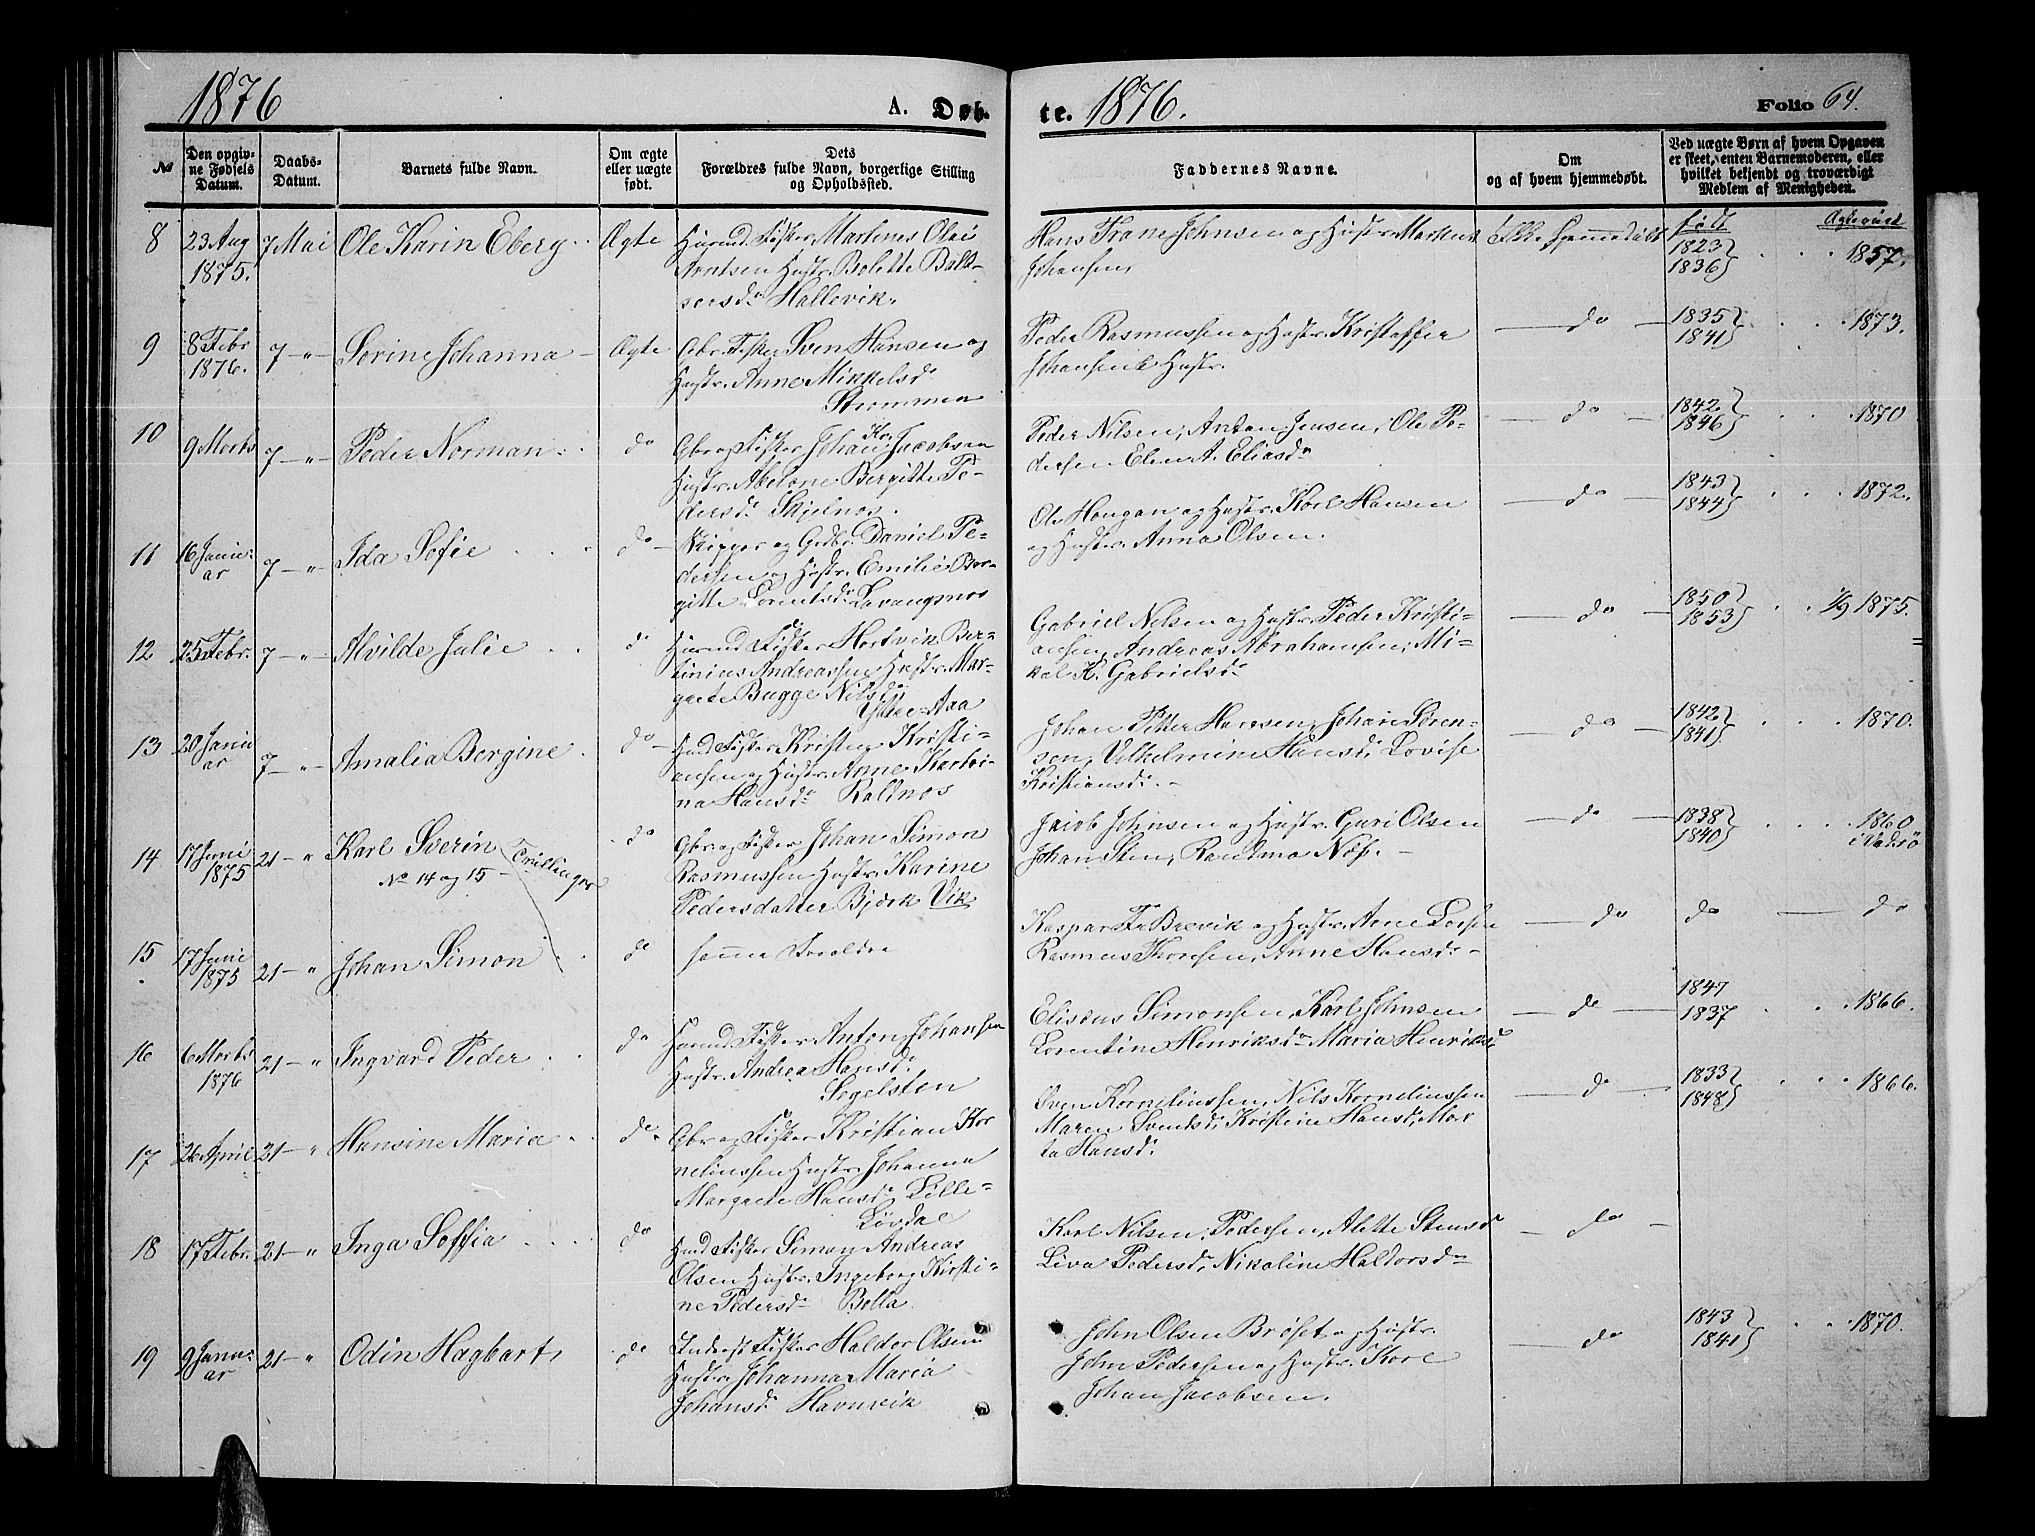 1876
A. Døb-
te. 1876.
Folio 64.
№
Den opgiv-
ne Fødsels
Datum.
Daabs-
Datum.
Barnets fulde Navn.
Om ægte
eller uægte
født.
Dets
Forældres fulde Navn, borgerlige Stilling
og Opholdssted.
Faddernes Navne.
Om
og af hvem hjemmedøbt.
Ved uægte Børn af hvem Opgaven
er skeet, enten Barnemoderen, eller
hvilket bekjendt og troværdigt
Medlem af Menigheden.
født
8
23 Aug
1875.
7 Mai
Ole Karin Eberg
Ægte
Fisker Martines Olai
Arntsen Hustr. Bolette Balt-
sersdr Hallevik.
Hans Trane Johnsen og Hustr. Markus
Johansen,
1823
1836
1857.
9
8 Febr
1876.
7 - " -
Sorine Johanna
Ægte
Gbr. Fisker Sven Hansen og
Hustr. Anne Mikkelsdr
Strømmen
Peder Rasmussen og Hustr. Kristoffer
Johansen & Hustr.
do
1835
1841
1873.
10
9 Marts
7 - " -
Peder Norman
do
Gbr og Fisker Johan Kr. Jacobsen
Hustr. Abelone Bergitte Pe-
dersdr Skjelnes.
Peder Nilsen, Anton Jensen, Ole Pe-
dersen Elen A. Eliasdr
do
1842
1846
1870
11
16 Janu-
ar
7 - " -
Ida Sofie
do
Skipper og Grdbr. Daniel Pe-
dersen og Hustr. Emilie Ber-
gitte Lorentsdr Lavangsnes
Ole Hougan og Hustr. Karl Hansen
og Hustr. Anna Olsen.
do
1843
1844
1872.
12
25 Febr.
7 - " -
Alvilde Julie
do
Fisker Hartvik Ber-
tinius Andreassen Hustr. Mar-
grete Bagge Nilsdr
Ytre-Aaa
Gabriel Nilsen og Hustr. Peder Kristi-
ansen, Andreas Abrahamsen, Mi-
kal K. Gabrielsdr
do
1850
1853
1/9 1875.
13
20 Janu
ar
7 - " -
Amalia Bergine
do
Fisker Kristen Kristi-
ansen og Hustr. Anne Kartri-
na Hansdr Kaldnes
Johan Petter Hansen, Johan Søren-
sen, Vilhelmine Hansdr, Lovise
Kristiansdr
do
1842
1841
1870.
14
17 Juni
1875
21 - "
Karl Sverin
No 14 og 15 - Tvillinger
do
Gbr og Fisker Johan Simon
Rasmussen Hustr. Karine
Pedersdatter Bjørk Vik
Jacob Johnsen og Hustr. Guri Olsen
Johan Sten,
do
1838
1840
1860
i Vadsø
15
17 Juni
1875
21 - "
Johan Simon
do
samme Foreldre
Kaspar Fr Brevik og Hustr. Arne Larsen
Rasmus Thoresen, Anne Hansdr
do
do
do
16
6 Marts
1876
21 - "
Ingvard Peder
do
Fisker Anton Johansen
Hustr. Andrea Hansdr
Segelsten
Eliseus Simonsen, Karl Johnsen
Lorentine Henriksdr Maria Henriksdr
do
1847
1837
1866.
17
26 April
21 - "
Hansine Maria
do
Gbr og Fisker Kristian Kor
neliussen Hustr. Johanna
Margrete Hansdr Lille-
Løvdal
Sven Korneliussen, Nils Korneliussen
Maren Svendsdr, Kristine Hansdr, Mar
ta Hansdr
do
1833
1848
1866.
18
17 Febr.
21 - "
Inga Soffia
do
Fisker Simon Andreas
Olsen Hustr. Ingeborg Kirsti-
ne Pedersdr Bolla.
Karl Nilsen, Pedersen, Alette Stensdr
Liva Pedersdr, Nikoline Haldorsdr
do
19
9 Janu-
ar
21 - "
Odin Hagbart,
do
Inderst Fisker Haldor Olsen
Hustr. Johanna Maria
Johansdr Havnvik
John Olsen Brøset og Hustr.
John Pedersen og Hustr. Kare
Johan Jacobsen.
do
1843
1841
1870.